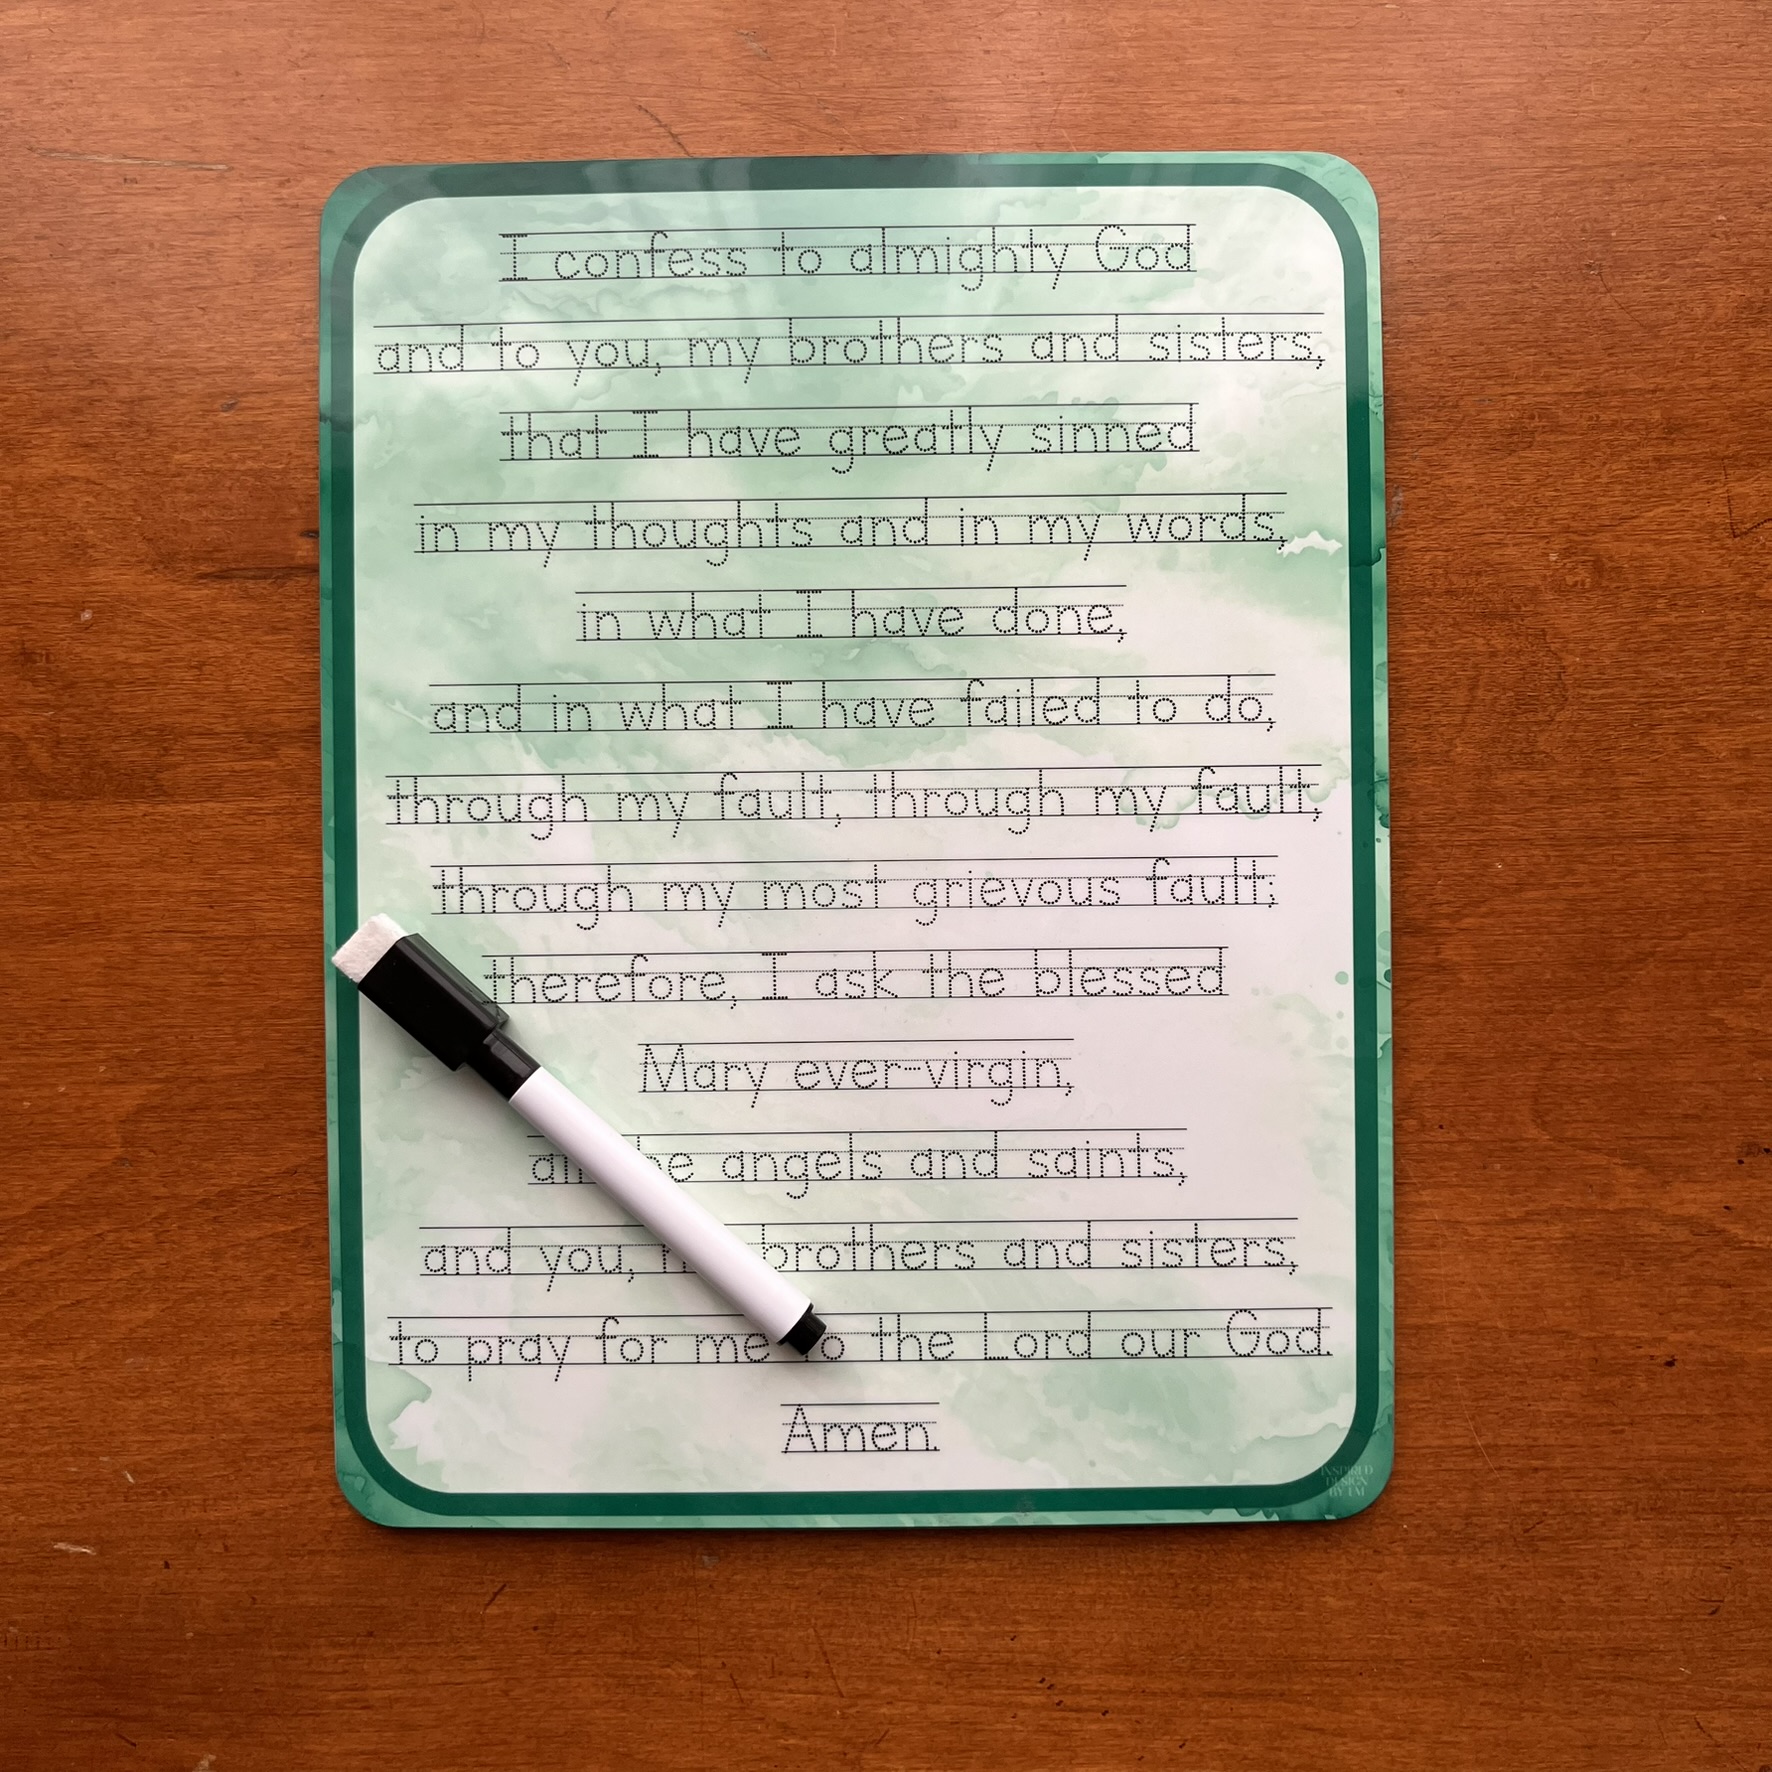 I confess to almighty God
and to you, my brothers and sisters,
that I have greatly sinned
in my thoughts and in my words,
in what I have done,
and in what I have failed to do,
through my fault, through my fault,
through my most grievous fault;
therefore, I ask the blessed
Mary ever-virgin,
all the angels and saints,
and you, brothers and sisters,
to pray for me to the Lord our God.
Amen.
INSPIRED
DESIGN
BY EM